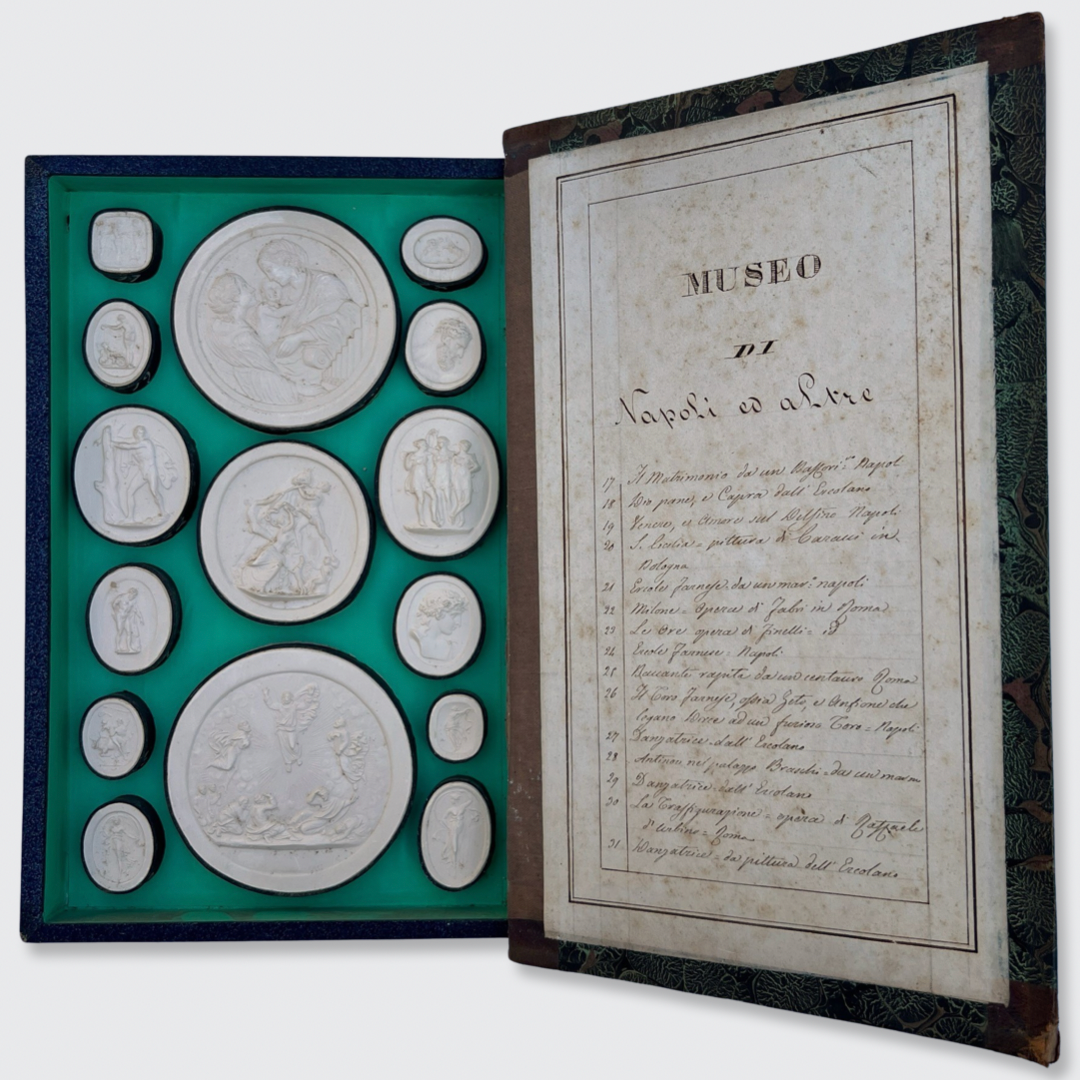 MUSEO
DI
Napoli ed altre
17 Il Matrimonio da un Bassori.º Napol
18 Dio pane, e Capra dall' Ercolano
19 Venere, et Amore sul Delfino Napoli
20 S. Cecilia = pittura di Caracci in
Bologna
21 Ercole Farnese da un mar.º napoli
22 Milone = opera di Fabri in Roma
23 Le Ore opera di Finelli = iδ
24 Ercole Farnese = Napoli
25 Baccante rapita da un centauro Roma
26 Il Toro Farnese, ossia Zeto, e Anfione che
legano Dirce ad un furioso Toro = Napoli
27 Danzatrice dall' Ercolano
28 Antinou nel palazzo Braschi da un marm
29 Danzatrice dall' Ercolano
30 La Trasfigurazione = opera di Raffaele
d'Urbino = Roma
31 Danzatrice = da pittura dell' Ercolano